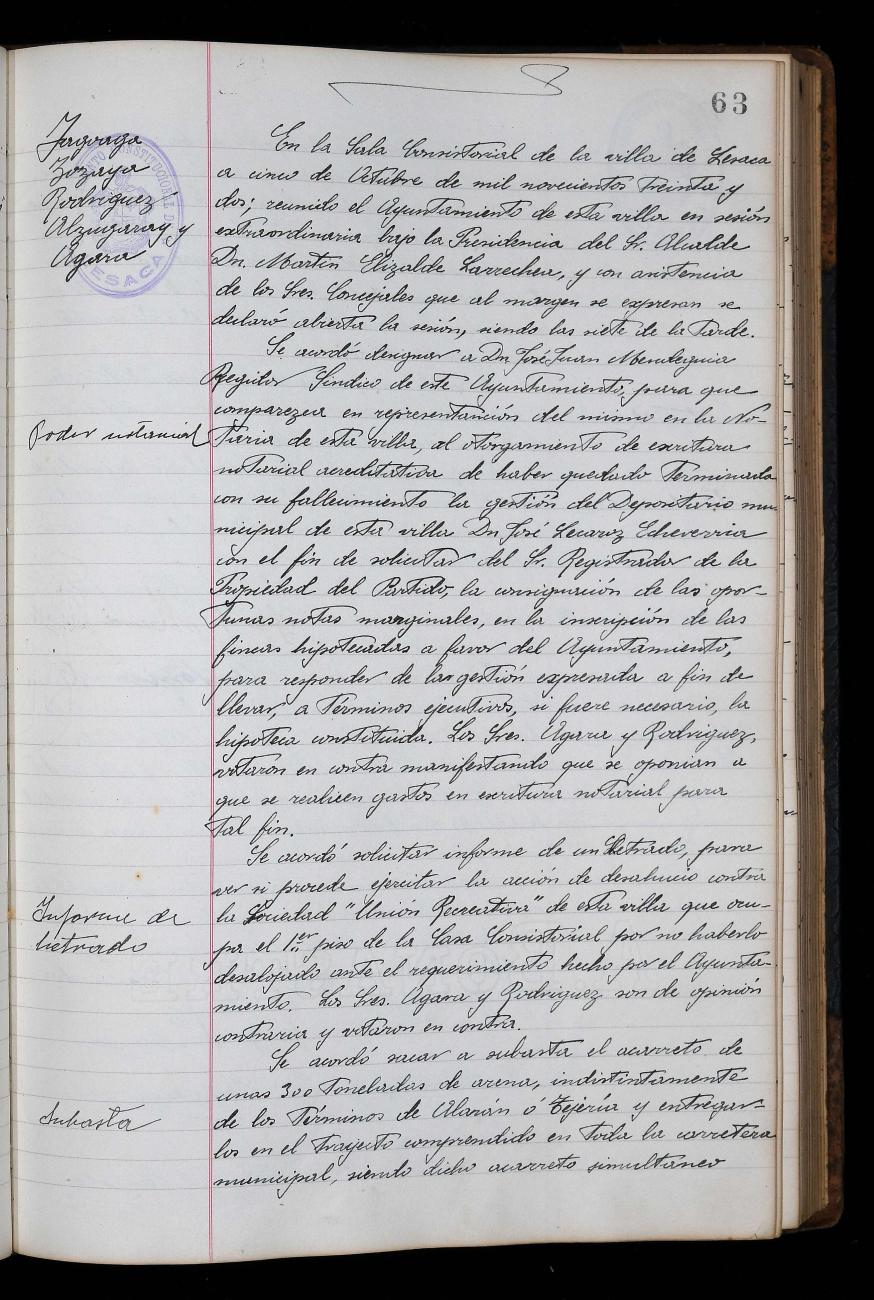 63
Jagoaga
Zozaya
Rodriguez
Alzugaray y
Agara
LESACA
En la Sala Consistorial de la villa de Lesaca
a cinco de Octubre de mil novecientos treinta y
dos; reunido el Ayuntamiento de esta villa en sesión
extraordinaria bajo la Presidencia del Sr. Alcalde
Dn. Martin Elizalde Larrechea, y con asistencia
de los Sres. Concejales que al margen se expresan se
declaró abierta la sesión, siendo las siete de la tarde.
Se acordó designar a Dn José Juan Mendeguia
Regidor Síndico de este Ayuntamiento, para que
comparezca en representanción del mismo en la No-
Poder notarial
taria de esta villa, al otorgamiento de escritura
notarial acreditativa de haber quedado terminada
con su fallecimiento la gestión del Depositario mu-
nicipal de esta villa Dn José Lecaroz Echeverria
con el fin de solicitar del Sr. Registrador de la
Propiedad del Partido, la consignación de las opor-
tunas notas marginales, en la inscripción de las
fincas hipotecadas a favor del Ayuntamiento,
para responder de la gestión expresada a fin de
llevar, a términos ejecutivos, si fuere necesario, la
hipoteca constituida. Los Sres. Agara y Rodriguez,
votaron en contra manifestando que se oponian a
que se realicen gastos en escritura notarial para
tal fin.
Se acordó solicitar informe de un Letrado, para
ver si procede ejercitar la acción de desahucio contra
Informe de
letrado
la Sociedad "Unión Recreativa" de esta villa que ocu-
pa el 1er piso de la Casa Consistorial por no haberlo
desalojado ante el requerimiento hecho por el Ayunta-
miento. Los Sres. Agara y Rodriguez son de opinión
contraria y votaron en contra.
Se acordó sacar a subasta el acarreto de
unas 300 toneladas de arena, indistintamente
Subasta
de los términos de Alarán ó Tejería y entregar-
los en el trayecto comprendido en toda la carretera
municipal, siendo dicho acarreto simultaneo